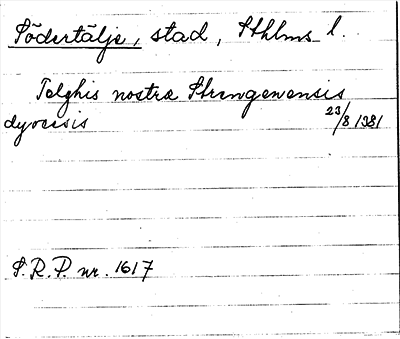 Södertälje, stad, Sthlms l.
Telghis nostre Strengenensis
dyocesis 23/8 1381
S.R.P. nr. 1617